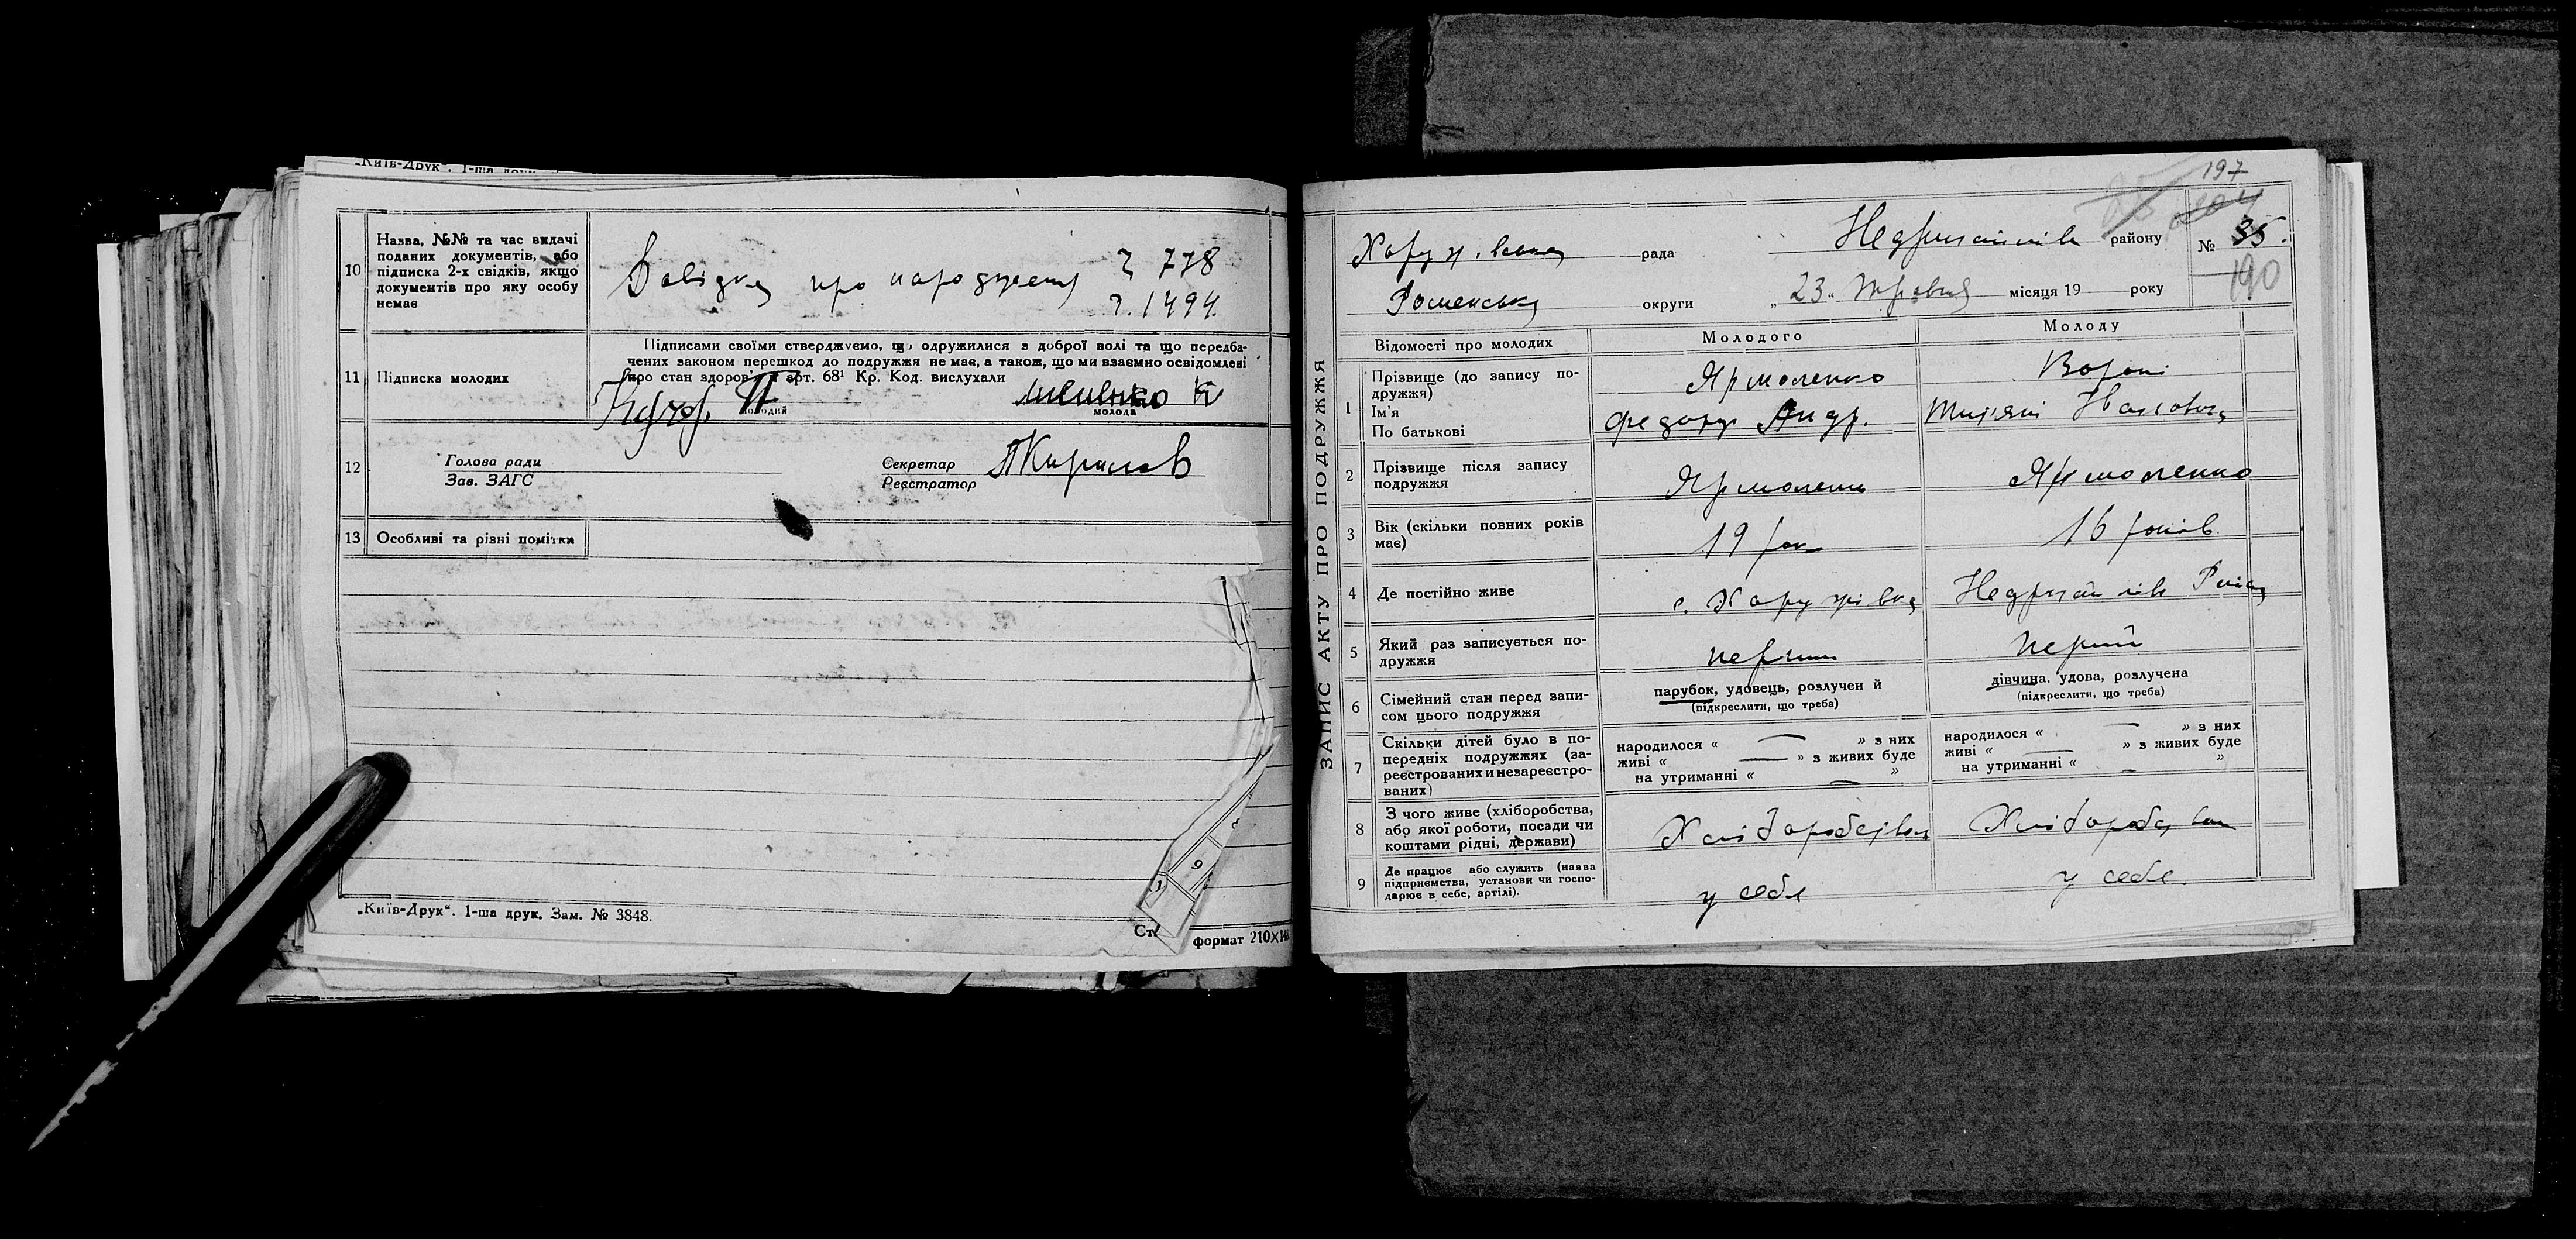 „Київ-Друк“. 1-ша друк.
10 Назва, №№ та час видачі
поданих документів, або
підписка 2-х свідків, якщо
документів про яку особу
немає
Довідка про народження
778
1494
11 Підписка молодих
Підписами своїми стверджуємо, що одружилися з доброї волі та що передба-
чених законом перешкод до подружжя не має, а також, що ми взаємно освідомлені
про стан здоров' арт. 68¹ Кр. Код. вислухали
молодий
молода
12 Голова ради
Зав. ЗАГС
Секретар
Реєстратор
13 Особливі та різні помітки
9
„Київ-Друк“. 1-ша друк. Зам. № 3848.
Ст
формат 210×14
ЗАПИС АКТУ ПРО ПОДРУЖЖЯ
197
рада
Недригайлів району
№ 35.
190
Роменська округи
„23“ Травня місяця 19 року
Відомості про молодих
Молодого
Молоду
1 Прізвище (до запису по-
дружжя)
Ім'я
По батькові
Ярмоленко
Федору Андр.
2 Прізвище після запису
подружжя
Ярмоленко
Ярмоленко
3 Вік (скільки повних років
має)
19 рок
16 років.
4 Де постійно живе
с. Хоружівка
Недригайлів
5 Який раз записується по-
дружжя
перший
перший
6 Сімейний стан перед запи-
сом цього подружжя
парубок, удовець, розлучен й
(підкреслити, що треба)
дівчина, удова, розлучена
(підкреслити, що треба)
7 Скільки дітей було в по-
передніх подружжях (за-
реєстрованих и незареєстро-
ваних)
народилося « — » з них
живі « — » з живих буде
на утриманні « — »
народилося « — » з них
живі « — » з живих буде
на утриманні « — »
8 З чого живе (хліборобства,
або якої роботи, посади чи
коштами рідні, держави)
Хліборобством
Хліборобством
9 Де працює або служить (назва
підприємства, установи чи госпо-
дарює в себе, артілі).
у себе
у себе.